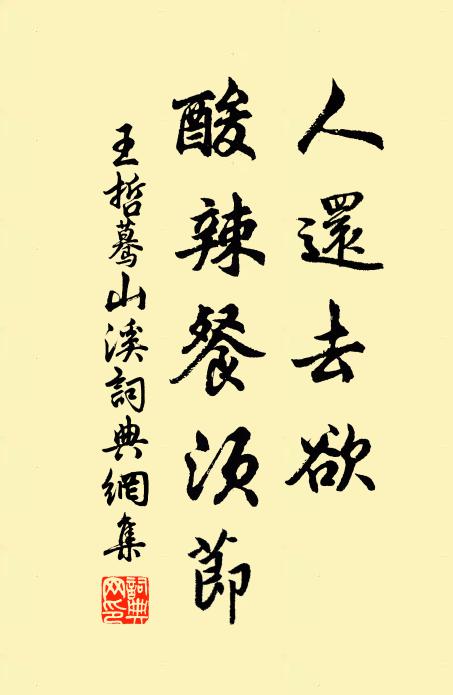 人還去欲
酸辣餐須節
王哲驀山溪詞典網集
詞典網印